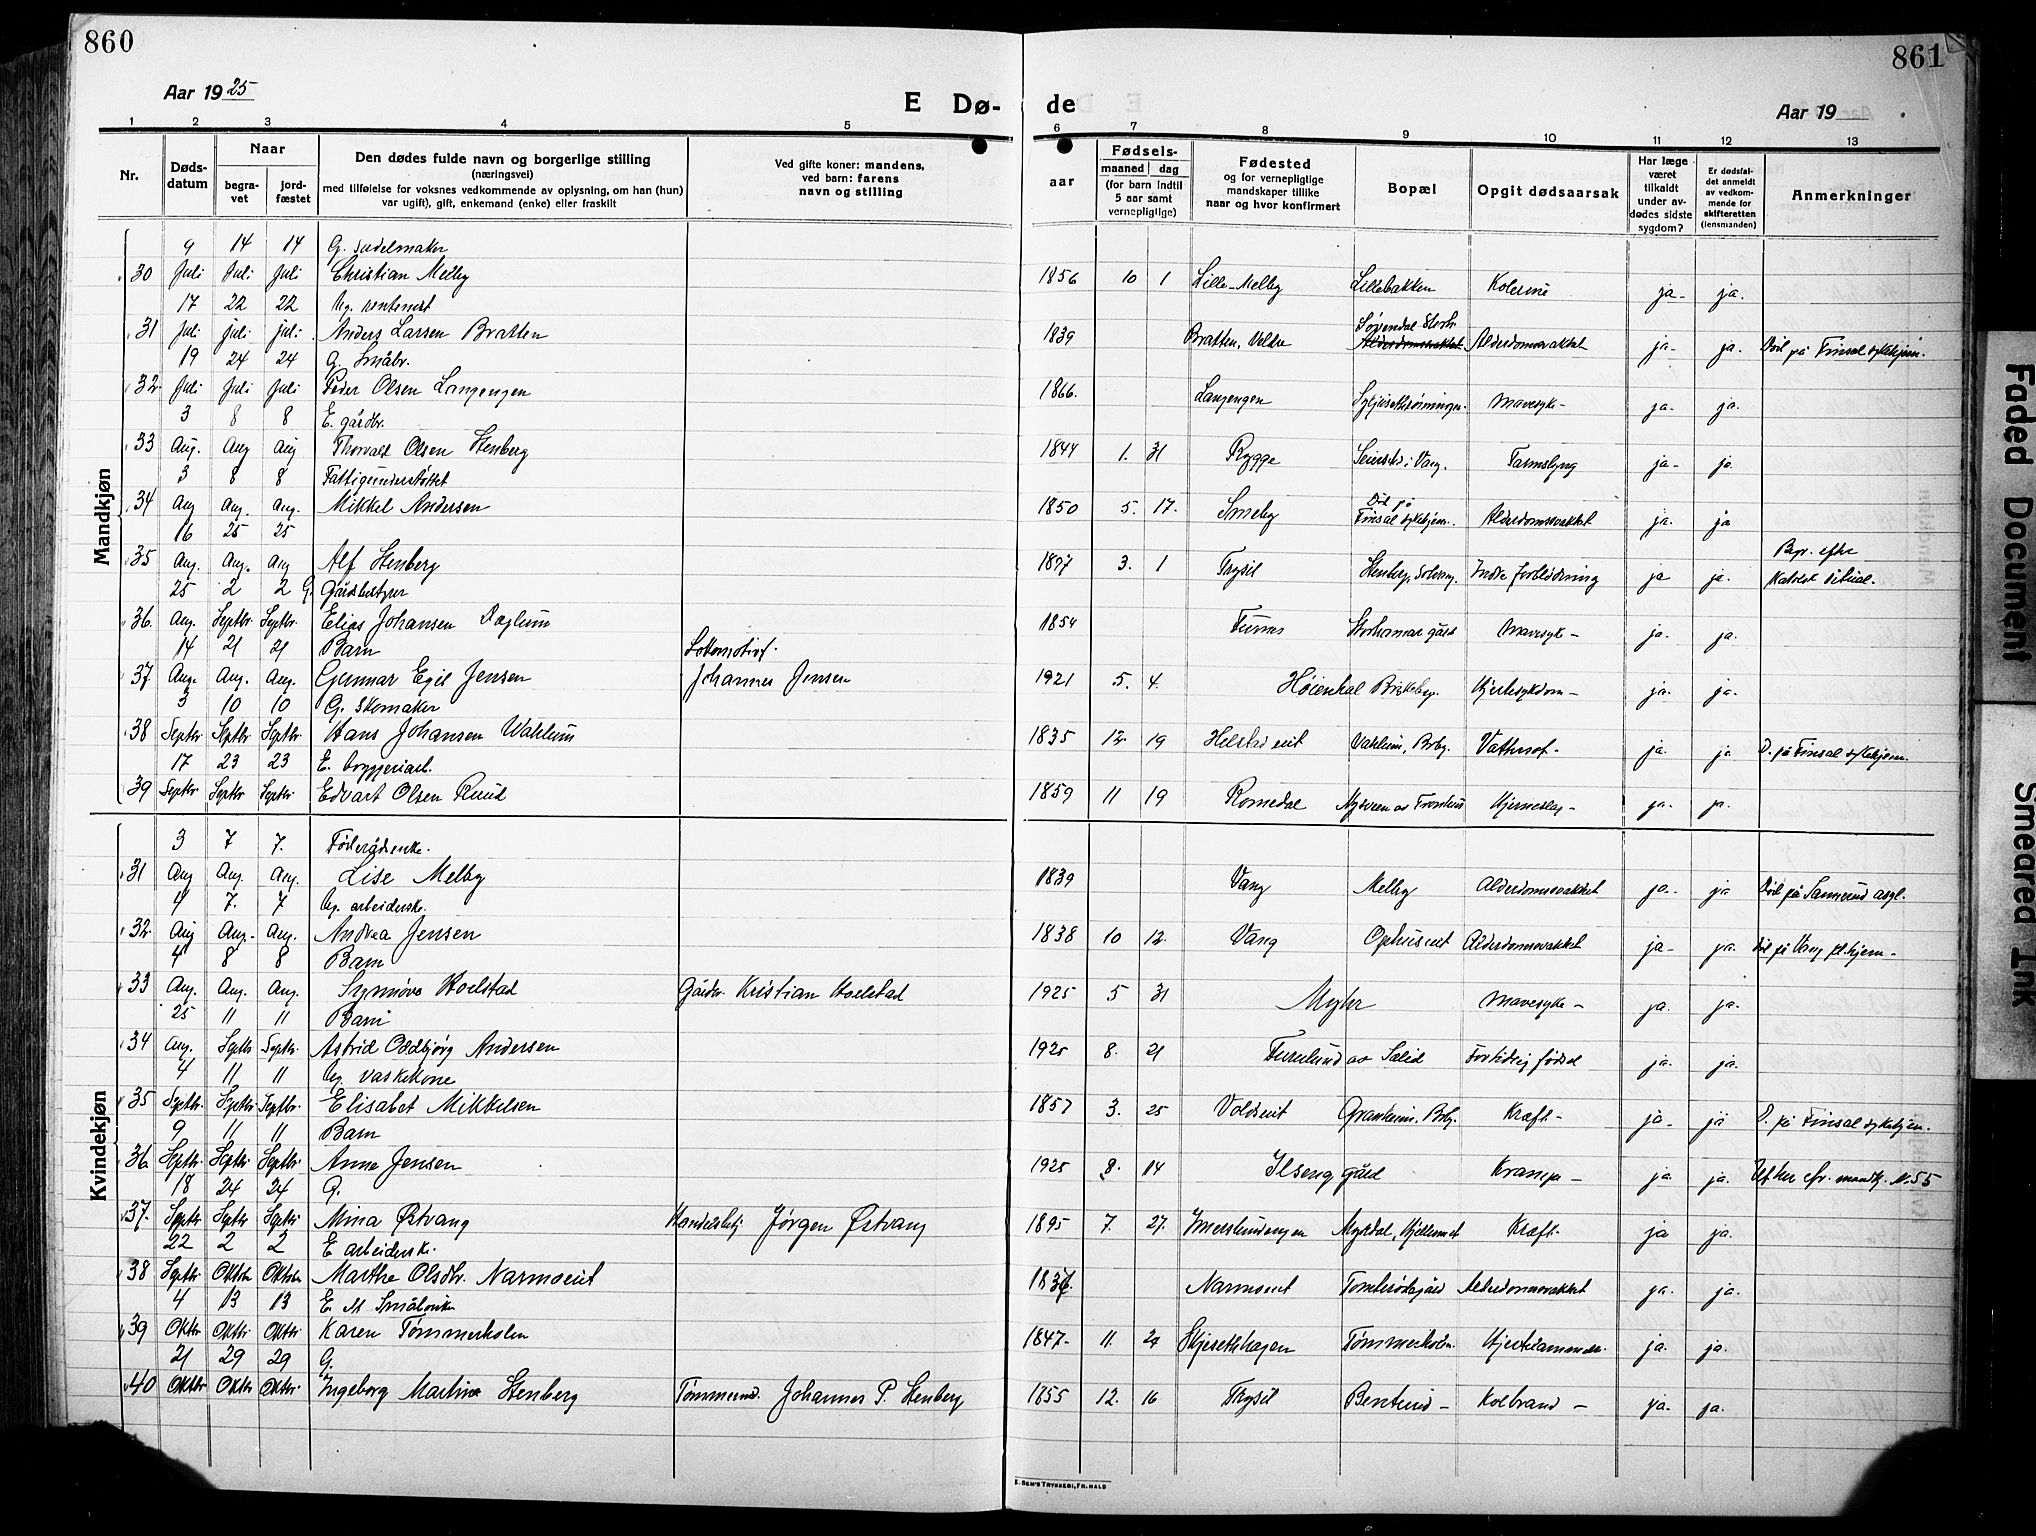 860
861
Aar 1925
E Dø-
de
Aar 19
1 2 3 4 5 6 7 8 9 10 11 12 13
Nr.
Døds-
datum
Naar
begra-
vet
jord-
fæstet
Den dødes fulde navn og borgerlige stilling
(næringsvei)
med tilføielse for voksnes vedkommende av oplysning, om han (hun)
var ugift), gift, enkemand (enke) eller fraskilt
Ved gifte koner: mandens,
ved barn: farens
navn og stilling
Fødsels-
aar
maaned dag
(for barn indtil
5 aar samt
vernepligtige)
Fødested
og for vernepligtige
mandskaper tillike
naar og hvor konfirmert
Bopæl
Opgit dødsaarsak
Har læge
været
tilkaldt
under av-
dødes sidste
sygdom?
Er dødsfal-
det anmeldt
av vedkom-
mende for
skifteretten
(lensmanden)
Anmerkninger
Mandkjøn
9 14 14 G. sadelmaker
30 Juli Juli Juli Christian Melby 1856 10 1 Lille-Melby Lillebakken ja- ja.
17 22 22 Ug.
31 Juli juli juli Anders Larsen Bratten 1839 Bratten, Veldre Alderdomssvakhet ja- ja. Død på Finsal sykehjem.
19 24 24 G. Småbr.
32 Juli Juli Juli Peder Olsen Langengen 1866 Langengen Mavesyke- ja- ja.
3 8 8 E. gårdbr.
33 Aug. Aug Aug Thorvald Olsen Stenberg 1844 1. 31 Rygge i Vang. Tarmslyng ja- ja.
3 8 8 Fattigunderstøttet
34 Aug Aug. Aug. Mikkel Andersen 1850 5. 17. Smeby Død på Finsal sykehjem. Alderdomssvakhet ja. ja
16 25 25
35 Aug. Aug. Aug Alf Stenberg 1897 3. 1 Trysil Stenberg, Indre forblødning ja ja. Begr. efter
25 2 2 G. Gårdbestyrer katolsk ritual.
36. Aug. Septbr. Septbr. Elias Johansen Daglum 1854 Furnes Storhamar gård Mavesyke- ja. ja.
14 21 21 Barn Lokomotivf.
37 Aug. Aug. Aug. Gunnar Egil Jensen Johannes Jensen 1921 5. 4. Høienhal Brikeby. Hjertesykdom- ja. ja.
3 10 10 G. skomaker
38 Septbr Septbr Septbr Hans Johansen Wahlum 1835 12. 19 Vahlum, Brby. Vattersot- ja. ja D. på Finsal sykehjem.
17 23 23 E. bryggeriarb.
39 Septbr Septbr Septbr Edvart Olsen Ruud 1859 11 19 Romedal Hjerneslag- ja. ja.
Kvindekjøn
3 7 7. Føderådsenke.
31 Aug Aug. Aug. Lise Melby 1839 Vang Melby Alderdomssvakhet ja- ja Død på Sannerud asyl.
4 7. 7 Ug. arbeiderske.
32. Aug Aug. Aug. Andrea Jensen 1838 10 12. Vang Ophuseiet Alderdomssvakhet ja- ja. Død på Vang pl.hjem-
4 8 8 Barn
33 Aug. Aug. Aug. Synnøve Hoelstad Gårdbr. Kristian Hoelstad 1925 5 31 Myhr Mavesyke- ja. ja.
25 11 11 Barn
34 Aug. Septbr Septbr. Astrid Oddbjørg Andersen 1925 8. 21 Furulund av Salid Fortidlig fødsel ja. ja.
4 11 11 Ug. vaskekone
35 Septbr. Septbr. Septbr. Elisabet Mikkelsen 1857 3. 25 Voldseiet Granheim, Brby. Kræft- ja- ja D. på Finsal sykehjem.
9 11 11 Barn
36. Septbr. Septbr Septbr Anne Jensen 1925 8. 14 Ilseng gård Krampe- ja ja.
18 24 24 G.
37. Septbr Septbr Septbr Mina Østvang Handelsbtj Jørgen Østvang 1895 7. 27. Imerslundengen Myrdal, Hjellumet Kræft- ja ja.
22 2 2 E arbeiderske.
38 Septbr. Oktbr Oktbr Marthe Olsdtr. Narmoeiet Narmoeiet Alderdomssvakhet ja. ja.
4 13 13 E.
39 Oktbr Oktbr Oktbr Karen Tømmerholen 1847. 11. Skjesethhagen Tømmerholen. Hjertelammelse. ja. ja.
21 29 29 G.
40 Oktbr Oktbr Oktbr. Ingeborg Martine Stenberg Tømmermd. Johannes P. Stenberg 1855 12. 16 Trysil Bentrud- Kolbrand- ja- ja.
E. SEM'S TRYKKERI, FR. HALD
Faded Document
Smeared Ink